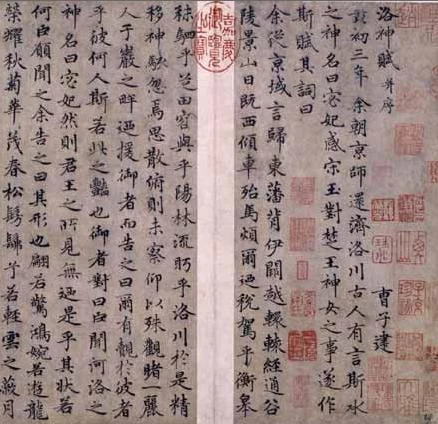 洛神賦 并序
曹子建
黃初三年余朝京師還濟洛川古人有言斯水
之神名曰宓妃感宋玉對楚王神女之事遂作
斯賦其詞曰
余從京域言歸東藩背伊闕越轘轅經通谷
陵景山日既西傾車殆馬煩爾迺稅駕乎衡皋
秣駟乎芝田容與乎陽林流眄乎洛川於是精
移神駭忽焉思散俯則未察仰以殊觀睹一麗
人于巖之畔迺援御者而告之曰爾有覿於彼者
乎彼何人斯若此之豔也御者對曰臣聞河洛之
神名曰宓妃然則君王之所見無迺是乎其狀若
何臣願聞之余告之曰其形也翩若驚鴻婉若遊龍
榮耀秋菊華茂春松髣髴兮若輕雲之蔽月
嘉慶御覽之寶